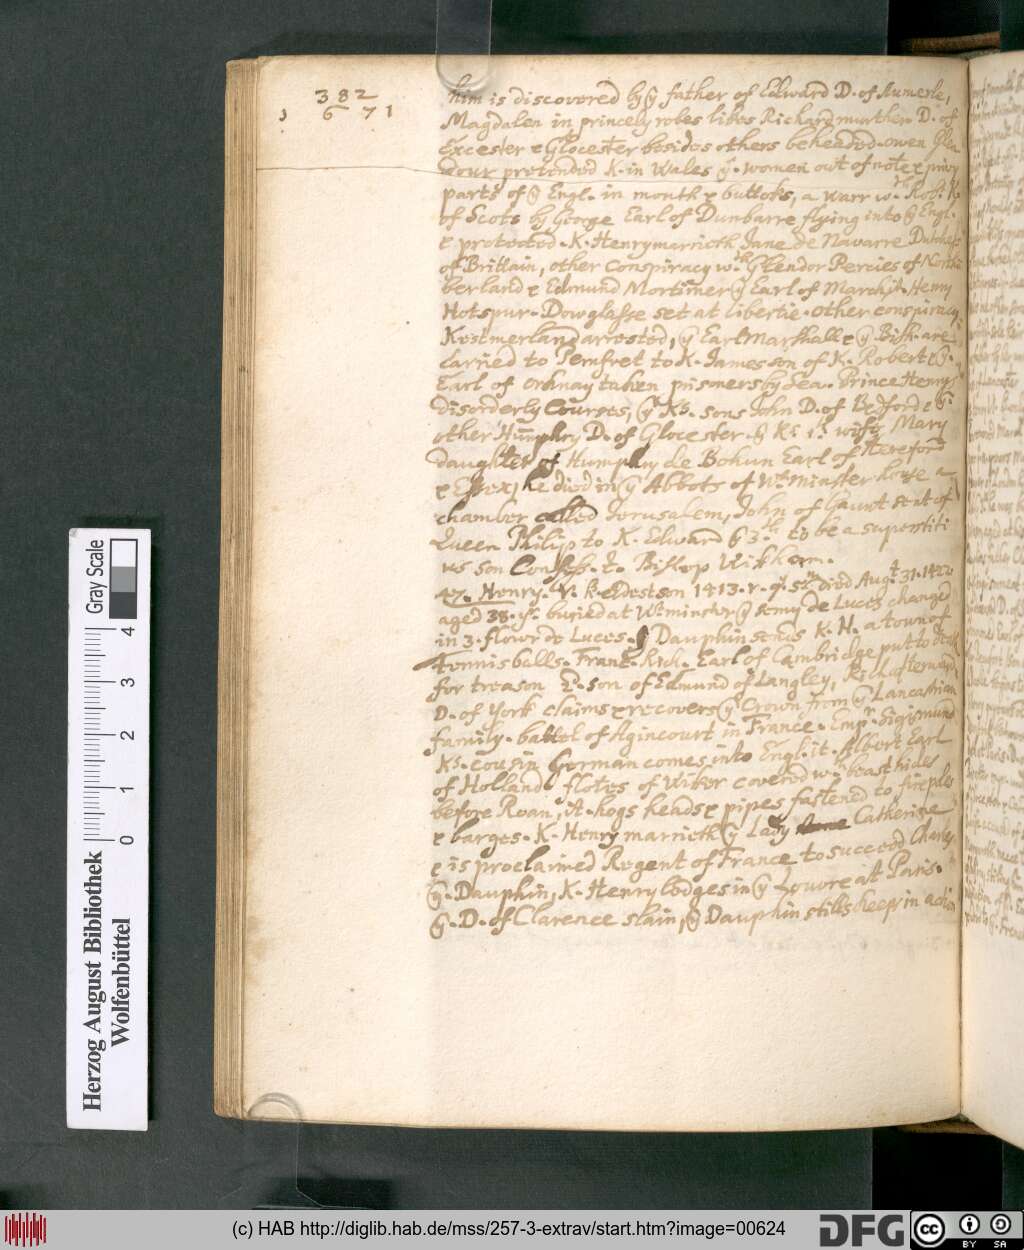 382
6 71
him is discovered by ye father of Edward D. of Aumerle,
Magdalen in princely robes likes Richard murther D. of
Excester & Glocester besides others beheaded. owen Glen
dour pretended K. in Wales ye. women cut of note & privy
parts of ye Engl. in mouth & buttoks, a warr wth Rob. K.
of Scots by George Earl of Dunbarre flying into ye Engl.
& protected. K. Henry marrieth Jane de Navarre Dutchess
of Brittain, other Conspiracy wth Glendor Percies of Northu
berland & Edmund Mortimer ye Earl of March. Henry
Hotspur. Dowglasse set at libertie. other conspiracy
Westmerland arrested, ye Earl Marshall & ye Bish. are
Carried to Pemfret to K. James son of K. Robert & ye.
Earl of Orknay taken prisoners by Sea. Prince Henrys
disorderly Courses, ye Ks. sons John D. of Bedforde ye
other Humphry D. of Glocester. ye Ks 1st wife Mary
daughter of Humphry de Bohun Earl of Hereford
& Essex, he died in ye Abbots of Wtminster house a
chamber called Jerusalem, John of Gaunt seat of
Queen Philip to K. Edward ye 3th to be a supositi
us son Confess. to Bishop Wickham.
47. Henry. V. k. eldest son 1413. r. 9. 5 died Augt 31. 1422
aged 38. ys. buried at Wtminster ye semy de Luces changed
in 3. flowr de Luces. ye Dauphin sends K. H. a town of
tennis balls. Rich. Earl of Cambridge put to death
for treason E. son of Edmund of Langley, Rich. afterward
D. of York claims & recovers ye Crown from ye Lancastrian
family. battel of Agincourt in France. Empr. Sigesmund
Ks. cousin German comes into Engl. it. Albert Earl
of Holland. flotes of Wiker coverd wth beast hides
before Roan, it. hogs heads & pipes fastened to firepoles
& barges. K. Henry marrieth ye Lady Catherine
& is proclaimed Regent of France to succeed Charles
ye. Dauphin, K. Henry lodges in ye Louvre at Paris.
ye. D. of Clarence slain, ye Dauphin stills keeps in action
Gray Scale
0 1 2 3 4
Herzog August Bibliothek
Wolfenbüttel
(c) HAB http://diglib.hab.de/mss/257-3-extrav/start.htm?image=00624
DFG
cc BY SA